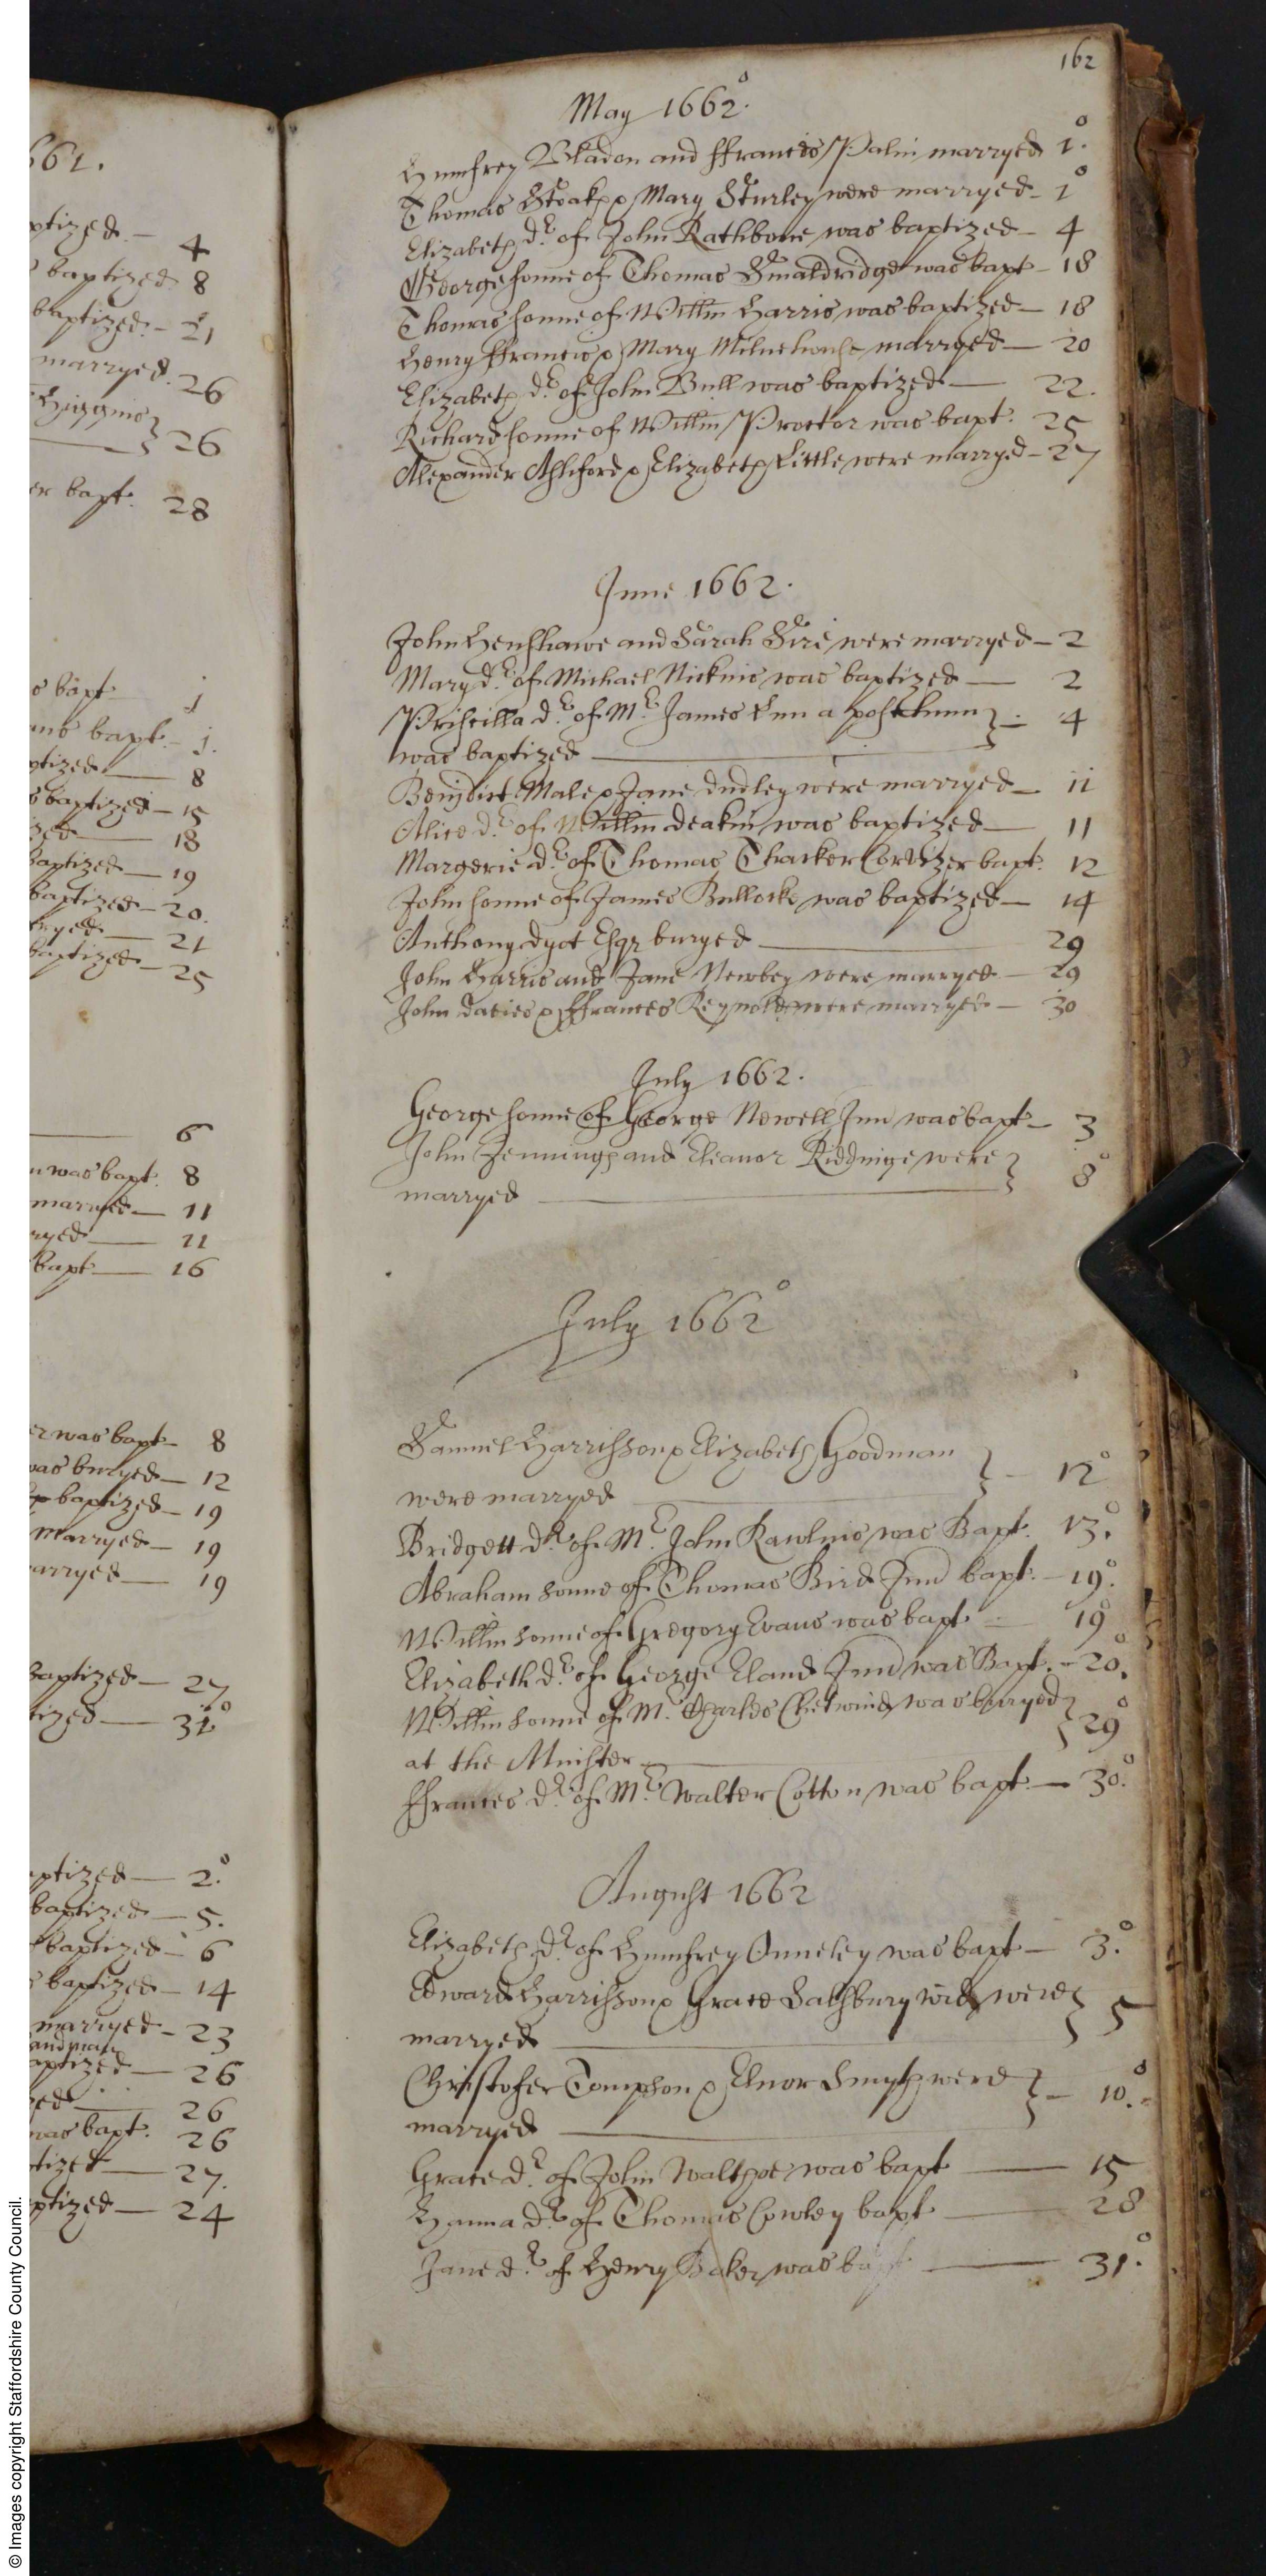 661.
ptized. — 4
baptized 8
baptized. — 21
marryed. 26
Higgins
26
er bapt. 28
s bapt 1
bapt. — 1.
ptized — 8
baptized — 15
zed — 18
baptized — 19
baptized — 20.
ryed — 21
baptized — 25
6
n was bapt. 8
marryed — 11
ryed — 11
bapt — 16
er was bapt — 8
was buryed — 12
baptized — 19
Marryed — 19
arryed — 19
baptized — 27
tized — 31°
aptized — 2.°
baptized — 5.
baptized — 6
baptized — 14
marryed — 23
aptized — 26
ed — 26
was bapt. 26
tized — 27.
ptized — 24
162
May 1662°.
Humfrey Bladon and ffrances Palin marryed 1.°
Thomas Stoakes & Mary Sturley were marryed — 1°
Elizabeth dr. of John Rathbone was baptized — 4
George sonne of Thomas Smaldridge was bapt — 18
Thomas sonne of Willm Harris was baptized — 18
Henry ffrancis & Mary Milnehouse marryed — 20
Elizabeth dr. of John Bull was baptized — 22.
Richard sonne of Willm Proctor was bapt. 25
Alexander Ashford & Elizabeth Little were marryed — 27
June 1662.
John Henshawe and Sarah Sire were marryed — 2
Mary dr. of Michael Nicknis was baptized — 2
Priscilla dr. of Mr. James a posthum } — 4
was baptized —
Benjdict Male & Jane dudley were marryed — 11
Alice dr. of Willm deakin was baptized — 11
Margerie dr. of Thomas Thacker Cordizer bapt. 12
John sonne of James Bullocke was baptized — 14
Anthony dyot Esqr buryed — 29
John Harris and Jane Newbey were marryed — 29
John davies & ffrances Reynolds were marryed — 30
July 1662.
George sonne of George Newell Jun was bapt — 3
John Jennings and Eleanor Riddinge were } 8°
marryed —
July 1662°
Samuel Harrisson & Elizabeth Goodman } — 12°
were marryed
Bridgett dr. of Mr. John Rawlins was Bapt. 13.°
Abraham sonne of Thomas Bird Jun bapt. — 19.°
Willm sonne of Gregory Evans was bapt — 19°
Elizabeth dr. of George Eland Jun was Bapt. — 20.°
Willm sonne of Mr. Charles Chetwind was buryed } 29°
at the Minster —
ffrances dr. of Mr. Walter Cotton was bapt — 30.°
August 1662
Elizabeth dr. of Humfrey Onneley was bapt — 3.°
Edward Harrisson & Grace Salsbury wid were } 5
marryed —
Christofer Tompson & Elnor Smyth were } — 10.°
marryed —
Grace dr. of John Walthoe was bapt — 15
Hanna dr. of Thomas Cowley bapt — 28
Jane dr. of Henry Baker was bapt — 31.°
© Images copyright Staffordshire County Council.